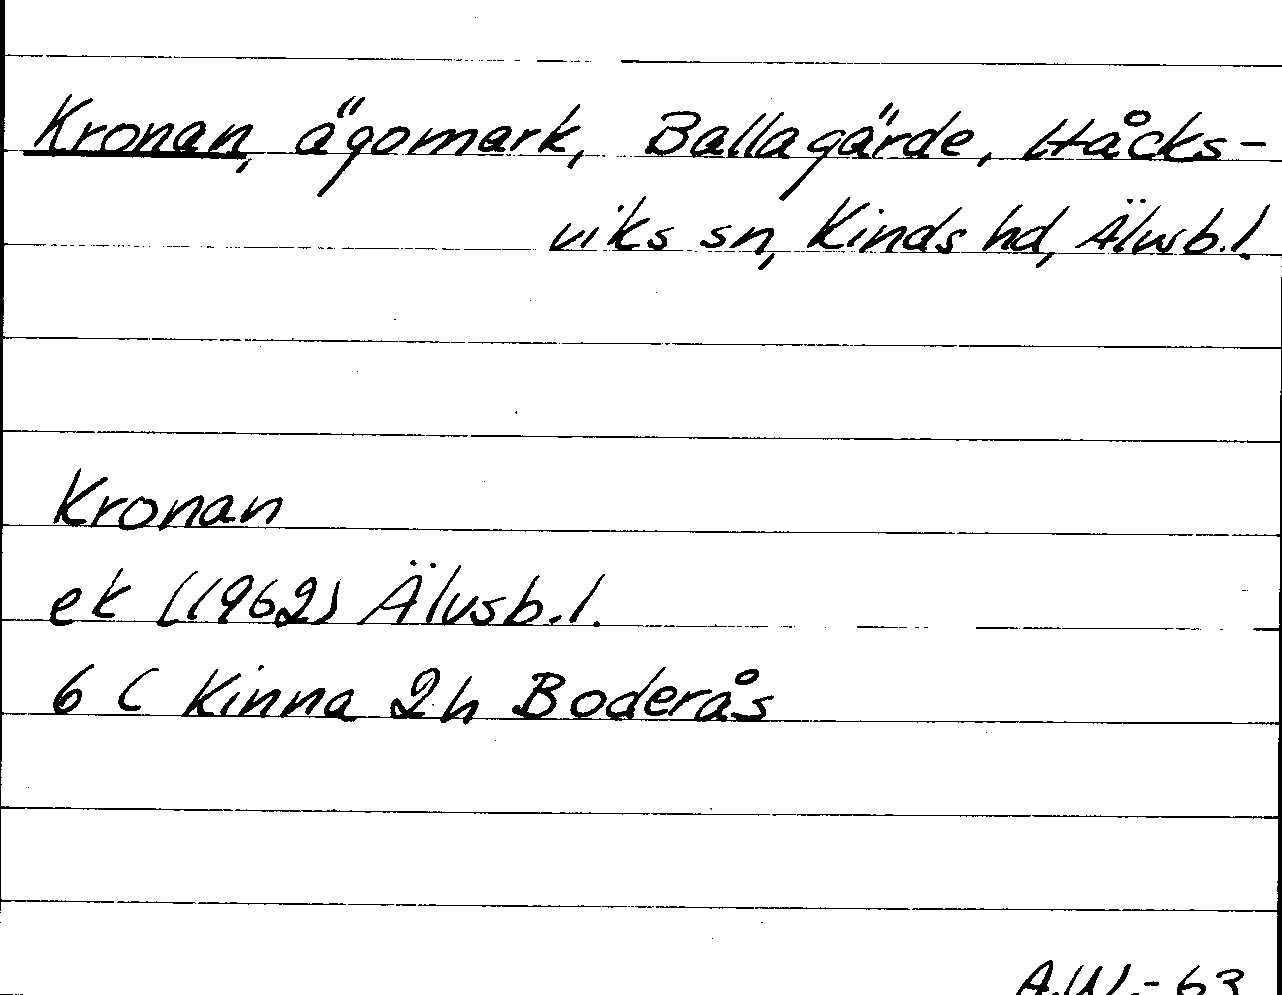 Kronan, ägomark, Ballagärde, Håcks-
viks sn, Kinds hd, Älvsb.l.
Kronan
ek (1962) Älvsb.l.
6 C Kinna 2h Boderås
A.W.-63